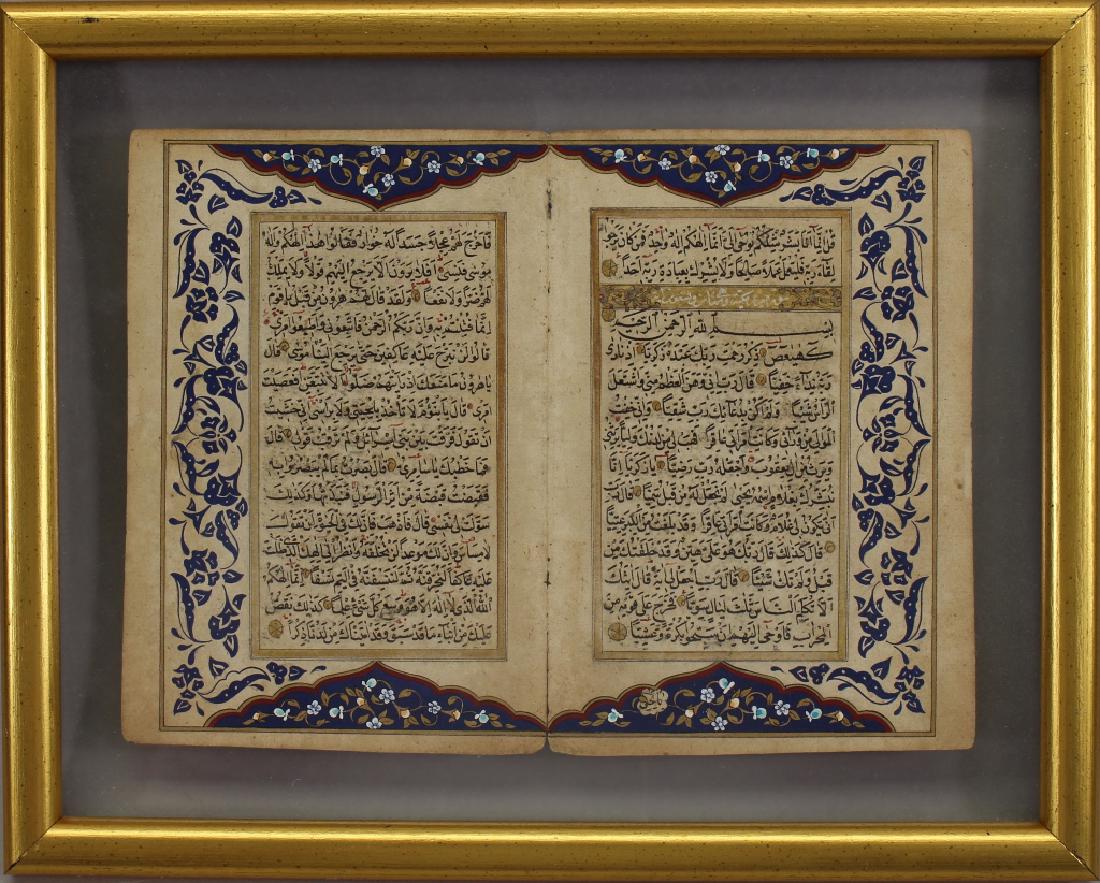 قل انما انا بشر مثلكم يوحى الي انما الهكم اله واحد فمن كان يرجوا
لقاء ربه فليعمل عملا صالحا ولا يشرك بعبادة ربه احدا
بسم الله الرحمن الرحيم
كهيعص ذكر رحمت ربك عبده زكريا اذ نادى
ربه نداء خفيا قال رب اني وهن العظم مني واشتعل
الراس شيبا ولم اكن بدعائك رب شقيا واني خفت
الموالي من ورائي وكانت امراتي عاقرا فهب لي من لدنك وليا يرثني
ويرث من ال يعقوب واجعله رب رضيا يا زكريا انا
نبشرك بغلام اسمه يحيى لم نجعل له من قبل سميا قال رب
انى يكون لي غلام وكانت امراتي عاقرا وقد بلغت من الكبر عتيا
قال كذلك قال ربك هو علي هين وقد خلقتك من
قبل ولم تك شيئا قال رب اجعل لي اية قال ايتك
الا تكلم الناس ثلث ليال سويا فخرج على قومه من
المحراب فاوحى اليهم ان سبحوا بكرة وعشيا
فاخرج لهم عجلا جسدا له خوار فقالوا هذا الهكم واله
موسى فنسي افلا يرون الا يرجع اليهم قولا ولا يملك
لهم ضرا ولا نفعا ولقد قال لهم هرون من قبل يا قوم
انما فتنتم به وان ربكم الرحمن فاتبعوني واطيعوا امري
قالوا لن نبرح عليه عاكفين حتى يرجع الينا موسى قال
يا هرون ما منعك اذ رايتهم ضلوا الا تتبعن افعصيت
امري قال يا بنؤم لا تاخذ بلحيتي ولا براسي اني خشيت
ان تقول فرقت بين بني اسرائيل ولم ترقب قولي قال
فما خطبك يا سامري قال بصرت بما لم يبصروا به
فقبضت قبضة من اثر الرسول فنبذتها وكذلك
سولت لي نفسي قال فاذهب فان لك في الحيوة ان تقول
لا مساس وان لك موعدا لن تخلفه وانظر الى الهك الذي ظلت
عليه عاكفا لنحرقنه ثم لننسفنه في اليم نسفا انما الهكم
الله الذي لا اله الا هو وسع كل شيء علما كذلك نقص
عليك من انباء ما قد سبق وقد اتيناك من لدنا ذكرا